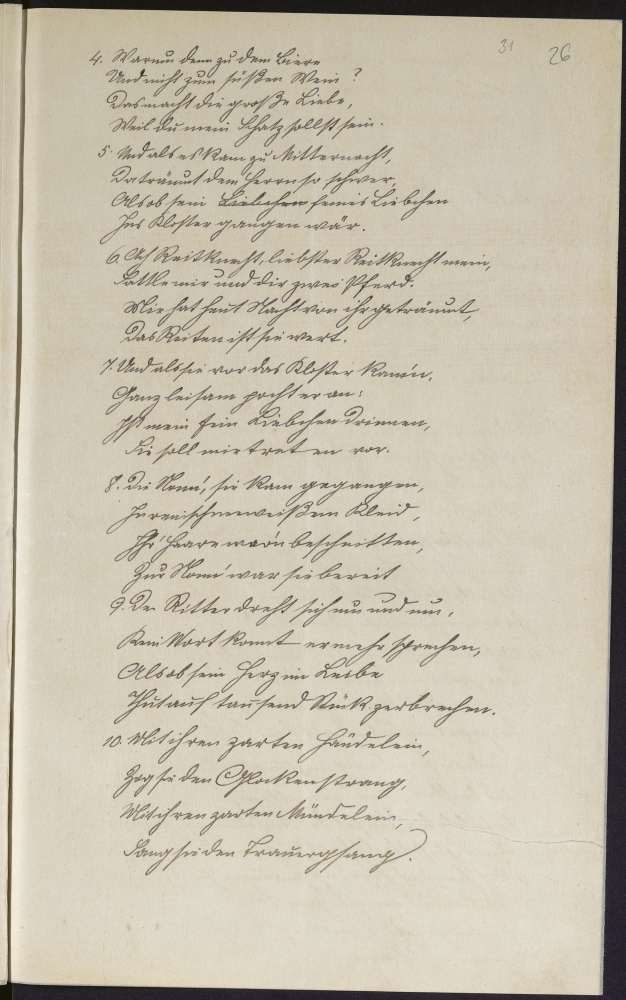 31 26
4. Warum denn zu dem Biere
Und nicht zum süßen Wein?
Das macht die große Liebe,
Weil du mein Schatz sollst sein.
5. Und als es kam zu Mitternacht,
Da träumt dem Herrn so schwer,
Als ob sein Liebchen feines Liebchen
Ins Kloster gangen wär.
6. Ach Reitknecht, liebster Reitknecht mein,
Sattle mir und dir zwei Pferd.
Mir hat heut Nacht von ihr geträumt,
Das Reiten ist sie wert.
7. Und als sie vor das Kloster kam'n,
Ganz leisam pocht er an:
Ist mein fein Liebchen drinnen,
Sie soll mir treten vor.
8. Die Nonn', sie kam gegangen,
In ren schneeweißem Kleid,
Ihr' Haare war'n beschnitten,
Zur Nonn' war sie bereit
9. Der Ritter dreht sich um und um,
Kein Wort konnt er mehr sprechen,
Als ob sein Herz im Leibe
Thut auf tausend Stück zerbrechen.
10. Mit ihren zarten Händelein,
Zog sie den Glockenstrang,
Mit ihren zarten Mündelein,
Sang sie den Trauergsang.